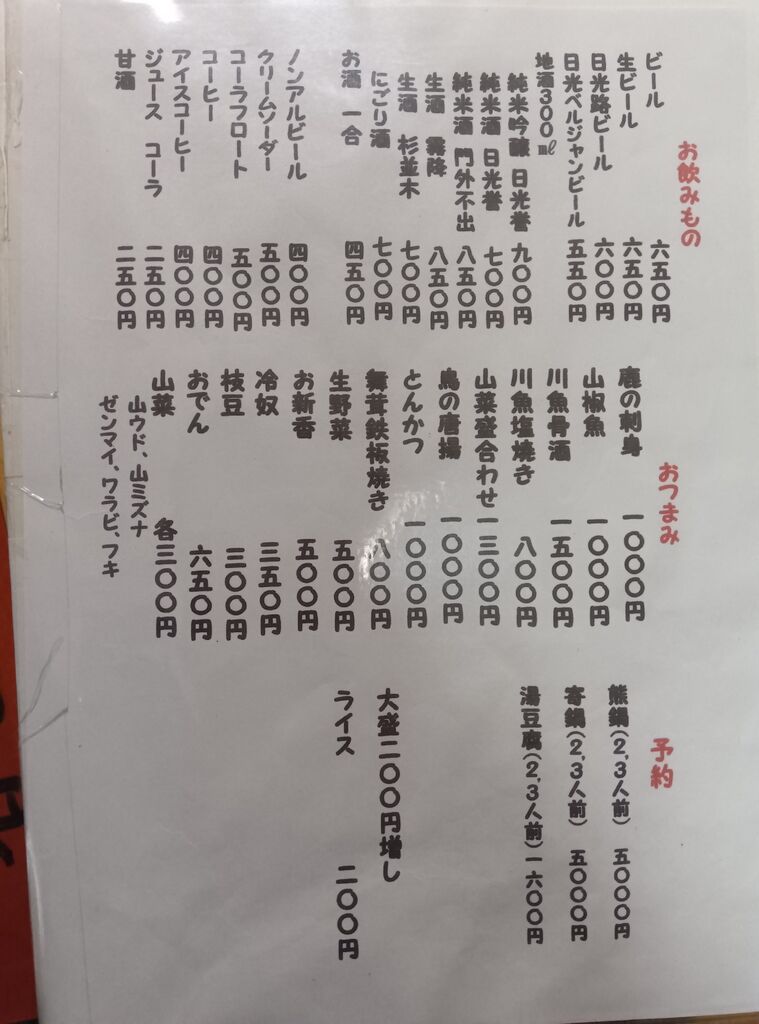 お飲みもの
ビール 六五〇円
生ビール 六五〇円
日光路ビール 六〇〇円
日光ベルジャンビール 五五〇円
地酒300㎖
純米吟醸 日光誉 九〇〇円
純米酒 日光誉 七〇〇円
純米酒 門外不出 八五〇円
生酒 霧降 八五〇円
生酒 杉並木 七〇〇円
にごり酒 七〇〇円
お酒 一合 四五〇円
ノンアルビール 四〇〇円
クリームソーダー 五〇〇円
コーラフロート 五〇〇円
コーヒー 四〇〇円
アイスコーヒー 四〇〇円
ジュース コーラ 二五〇円
甘酒 二五〇円
おつまみ
鹿の刺身 一〇〇〇円
山椒魚 一〇〇〇円
川魚骨酒 一五〇〇円
川魚塩焼き 八〇〇円
山菜盛合わせ 一三〇〇円
鳥の唐揚 一〇〇〇円
とんかつ 一〇〇〇円
舞茸鉄板焼き 八〇〇円
生野菜 五〇〇円
お新香 五〇〇円
冷奴 三五〇円
枝豆 三〇〇円
おでん 六五〇円
山菜 各三〇〇円
山ウド、山ミズナ
ゼンマイ、ワラビ、フキ
予約
熊鍋(2,3人前) 五〇〇〇円
寄鍋(2,3人前) 五〇〇〇円
湯豆腐(2,3人前)一六〇〇円
大盛二〇〇円増し
ライス 二〇〇円